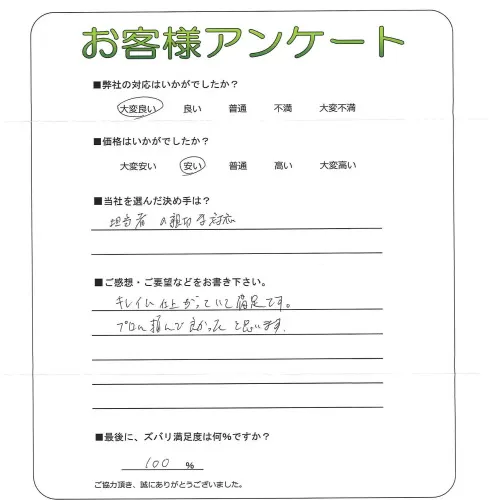 お客様アンケート
■弊社の対応はいかがでしたか？
大変良い 良い 普通 不満 大変不満
■価格はいかがでしたか？
大変安い 安い 普通 高い 大変高い
■当社を選んだ決め手は？
担当者の親切な対応
■ご感想・ご要望などをお書き下さい。
キレイに仕上がっていて満足です。
プロに頼んで良かったと思います。
■最後に、ズバリ満足度は何%ですか？
100 %
ご協力頂き、誠にありがとうございました。